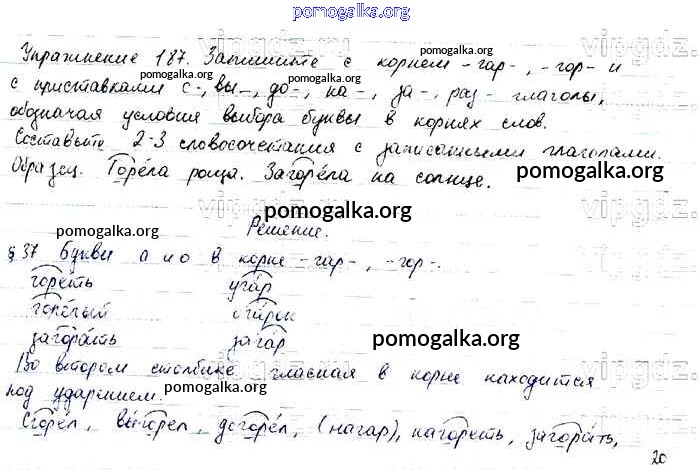 pomogalka.org
Упражнение 187. Запишите с корнем -гар-, -гор- и
с приставками с-, вы-, до-, на-, за-, раз- глаголы,
обозначая условия выбора буквы в корнях слов.
Составьте 2-3 словосочетания с записанными глаголами.
Образец. Горела роща. Загорела на солнце.
pomogalka.org
pomogalka.org
pomogalka.org
pomogalka.org
pomogalka.org
Решение.
§37 Буквы а и о в корне -гар-, -гор-.
гореть угар
горелый огарок
загорать загар
pomogalka.org
pomogalka.org
Во втором столбике гласная в корне находится
под ударением.
pomogalka.org
Сгорел, выгорел, догорел, (нагар), нагореть, загорать,
20
vipgdz.ru